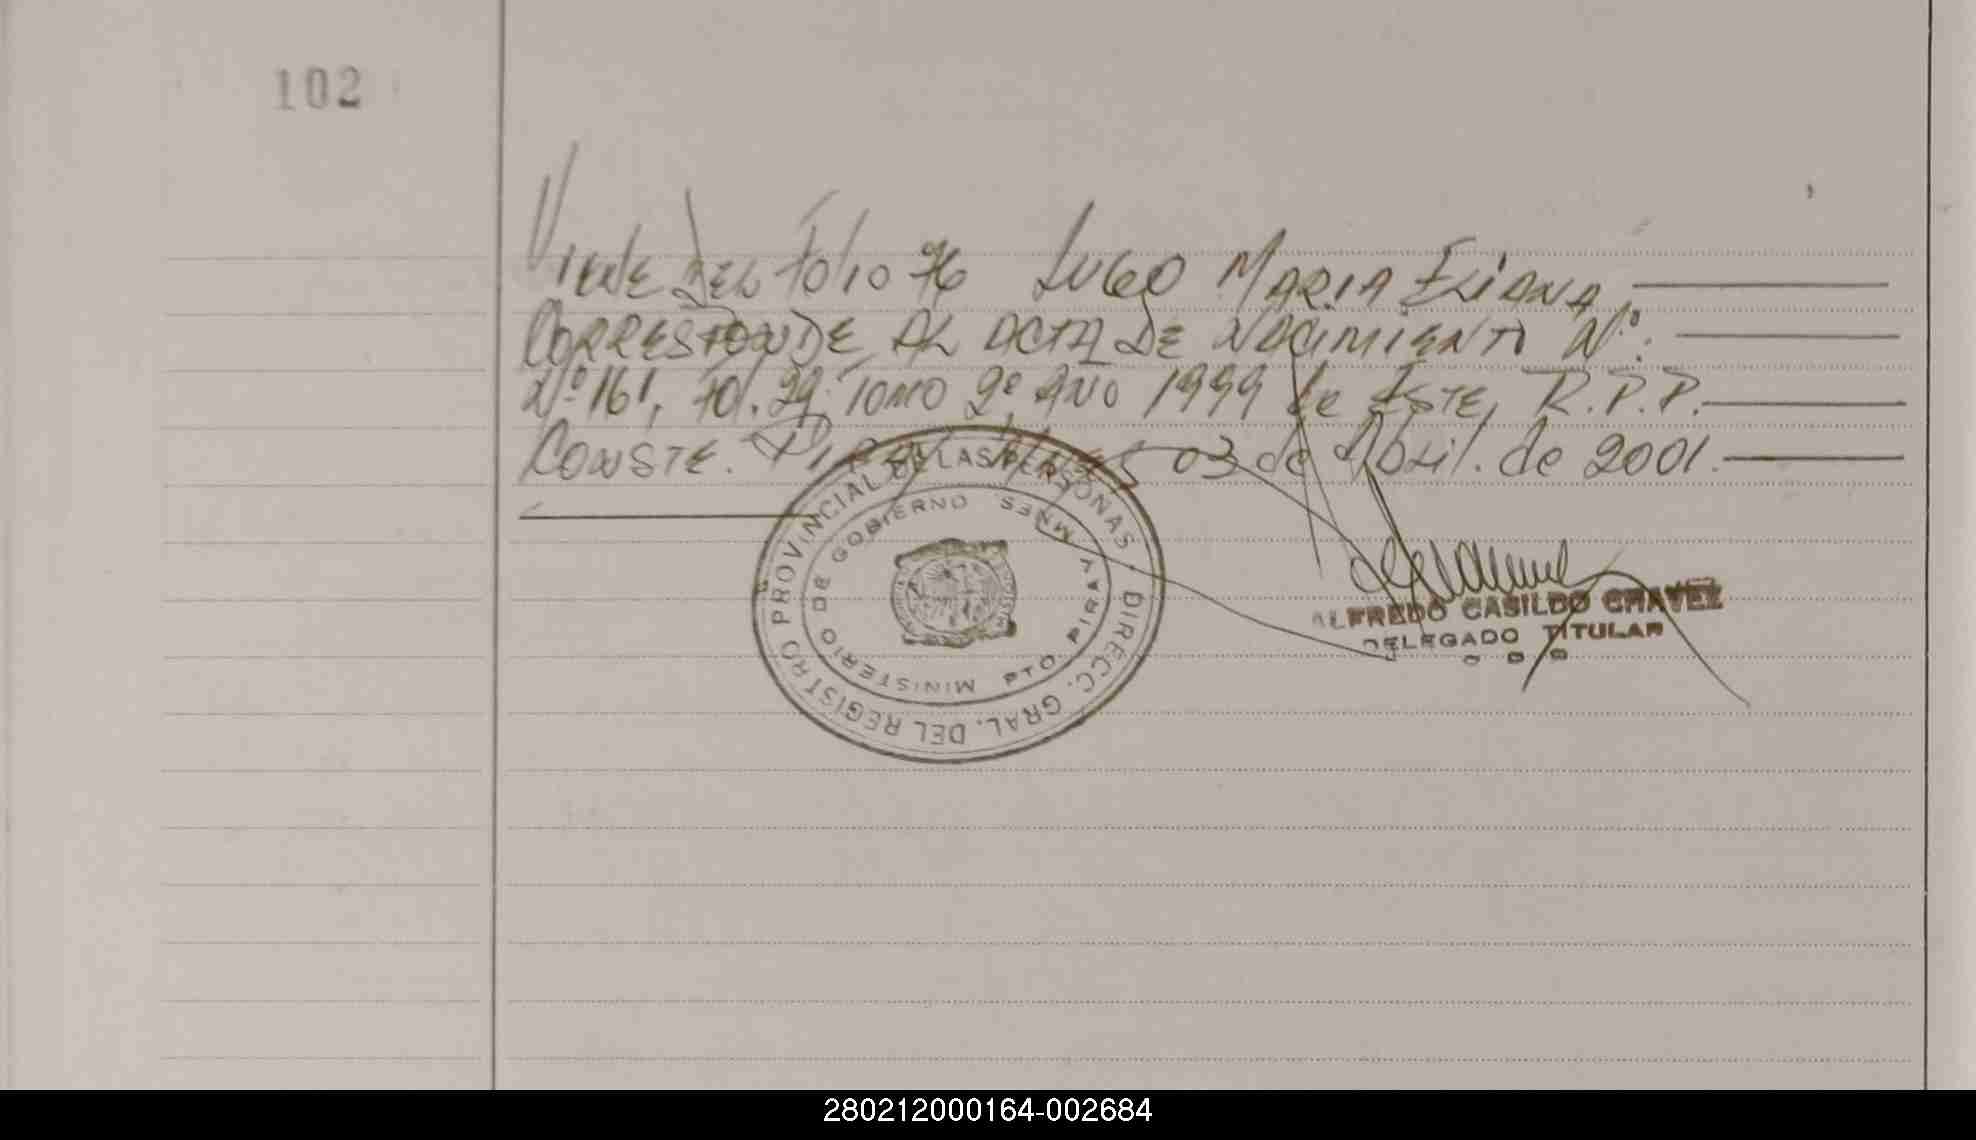 102
Viene del Folio 76 Lugo Maria Eliana,
Corresponde al acta de nacimiento N°:
N° 161, Fol. 29. Tomo 2° Año 1999 de Este, R.P.P.
Conste. 03 de Abril. de 2001.
DIRECC. GRAL. DEL REGISTRO PROVINCIAL DE LAS PERSONAS
MINISTERIO DE GOBIERNO
PTO. PIRAY MNES
ALFREDO CASILDO CHAVEZ
DELEGADO TITULAR
280212000164-002684